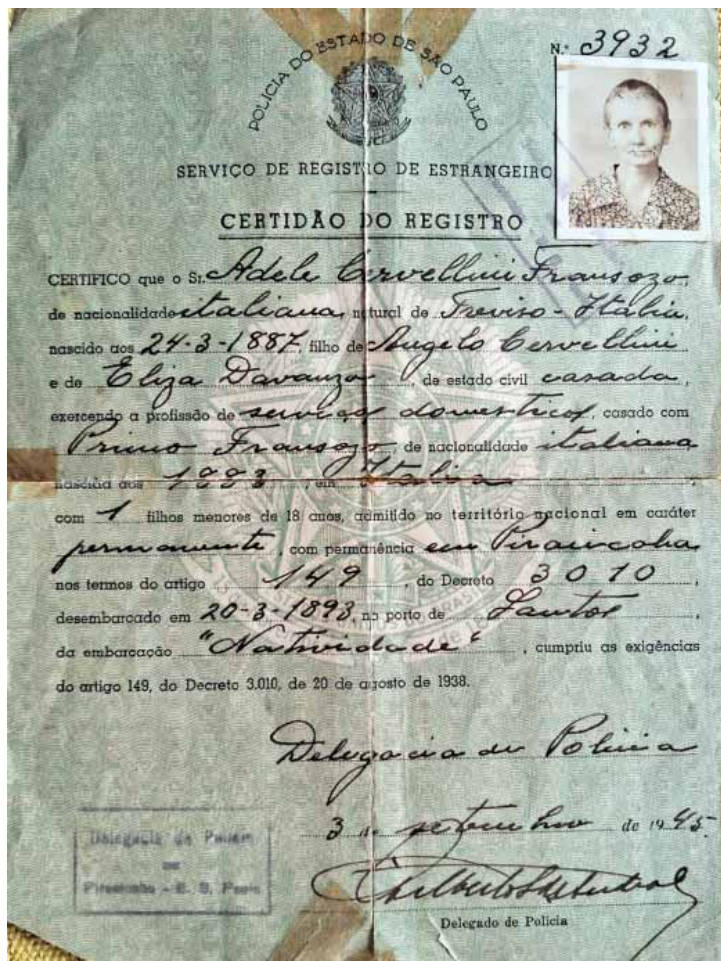 POLICIA DO ESTADO DE SÃO PAULO
N.º 3932
SERVIÇO DE REGISTRO DE ESTRANGEIRO
CERTIDÃO DO REGISTRO
CERTIFICO que o Sr. Adele Cervellini Fransozo,
de nacionalidade italiana, natural de Treviso - Italia,
nascido aos 24-3-1887, filho de Angelo Cervellini
e de Eliza Davanzo, de estado civil casada,
exercendo a profissão de serviços domesticos, casado com
Primo Fransozo, de nacionalidade italiana
nascida aos 1883, em Italia
com 1 filhos menores de 18 anos, admitido no território nacional em caráter
permanente, com permanência em
nos termos do artigo 149, do Decreto 3010,
desembarcado em 20-3-1893, no porto de Santos,
da embarcação "Natividade", cumpriu as exigências
do artigo 149, do Decreto 3.010, de 20 de agosto de 1938.
Delegacia de Policia
3 de setembro de 1945.
Delegacia de
Delegado de Policia